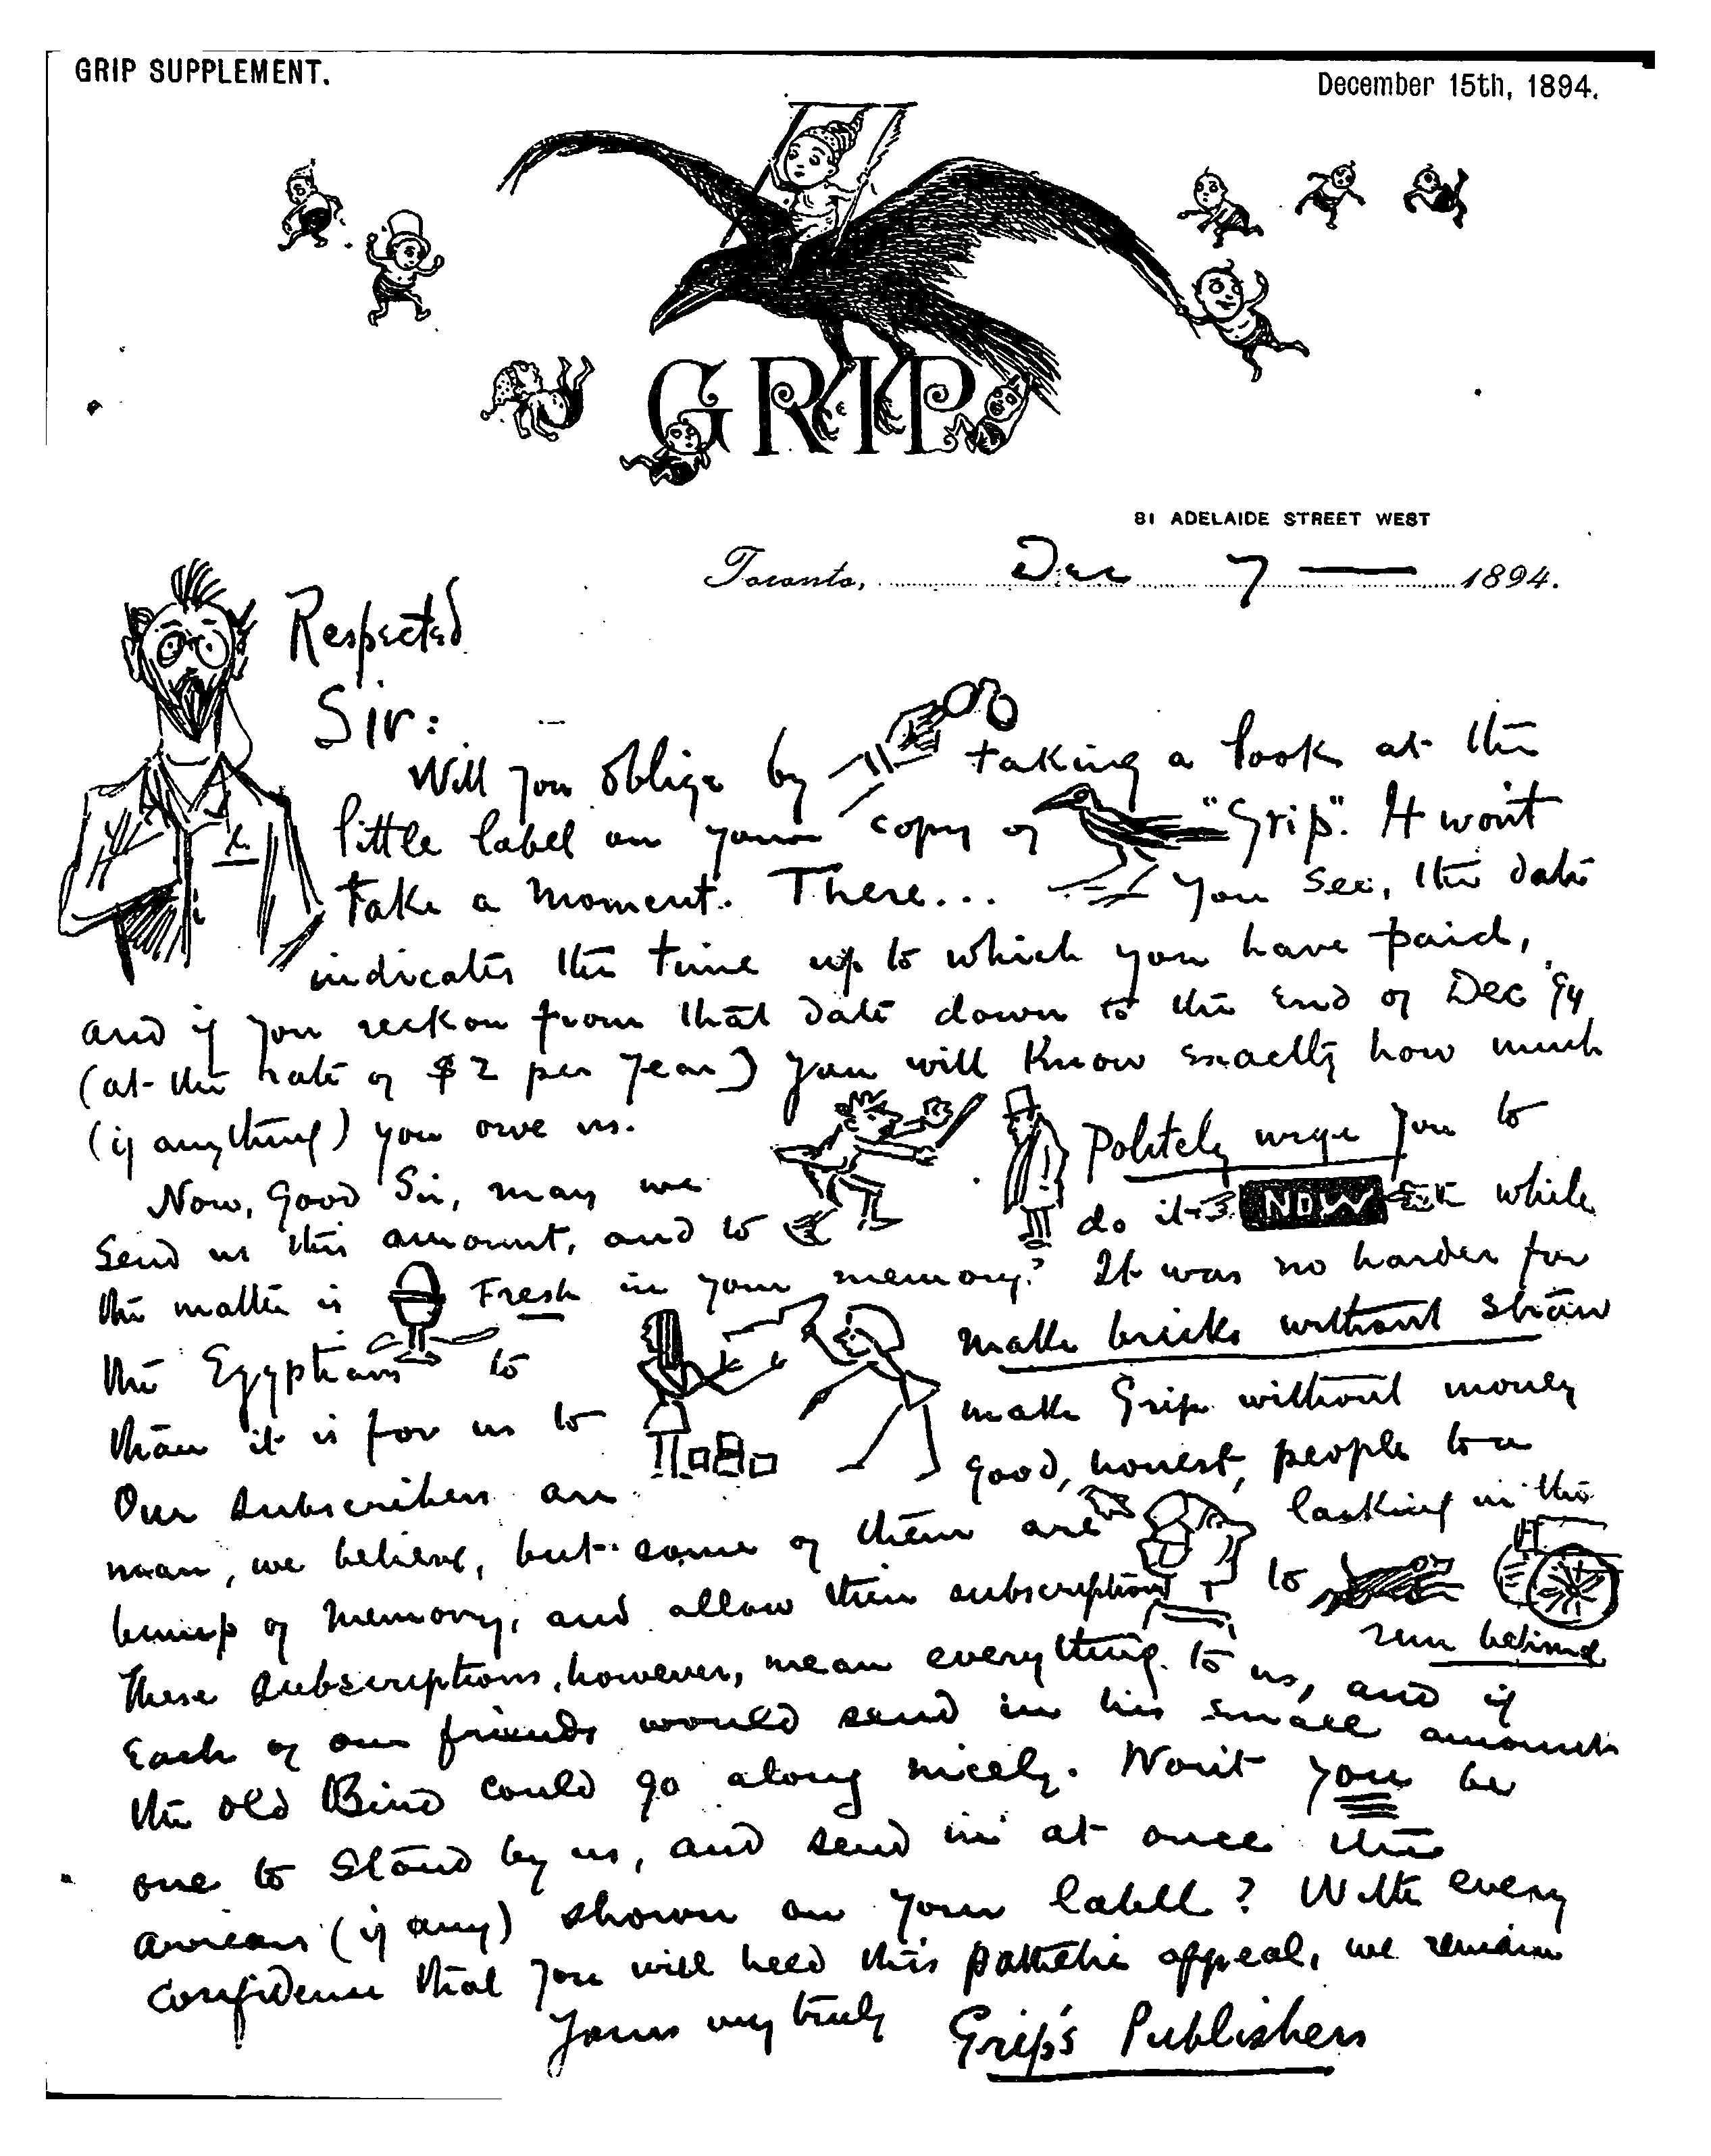 GRIP SUPPLEMENT.
December 15th, 1894.
GRIP
81 ADELAIDE STREET WEST
Toronto, Dec 7 — 1894.
Respected
Sir:
Will you oblige by taking a look at the
little label on your copy of "Grip". It won't
take a moment. There... You see, the date
indicates the time up to which you have paid,
and if you reckon from that date down to the end of Dec '94
(at the rate of $2 per year) you will know exactly how much
(if anything) you owe us.
Now, Good Sir, may we
send us this amount, and to
politely urge you to
do it NOW while
the matter is Fresh in your memory? It was no harder for
the Egyptians to
make bricks without straw
than it is for us to
make Grip without money
Our subscribers are
good, honest, people to a
man, we believe, but some of them are lacking in the
bump of memory, and allow their subscriptions to
run behind
These subscriptions, however, mean everything to us, and if
Each of our friends would send in his small amount
the old Bird could go along nicely. Won't you be
one to stand by us, and send in at once the
arrears (if any) shown on your label? With every
confidence that you will heed this pathetic appeal, we remain
Yours very truly Grip's Publishers